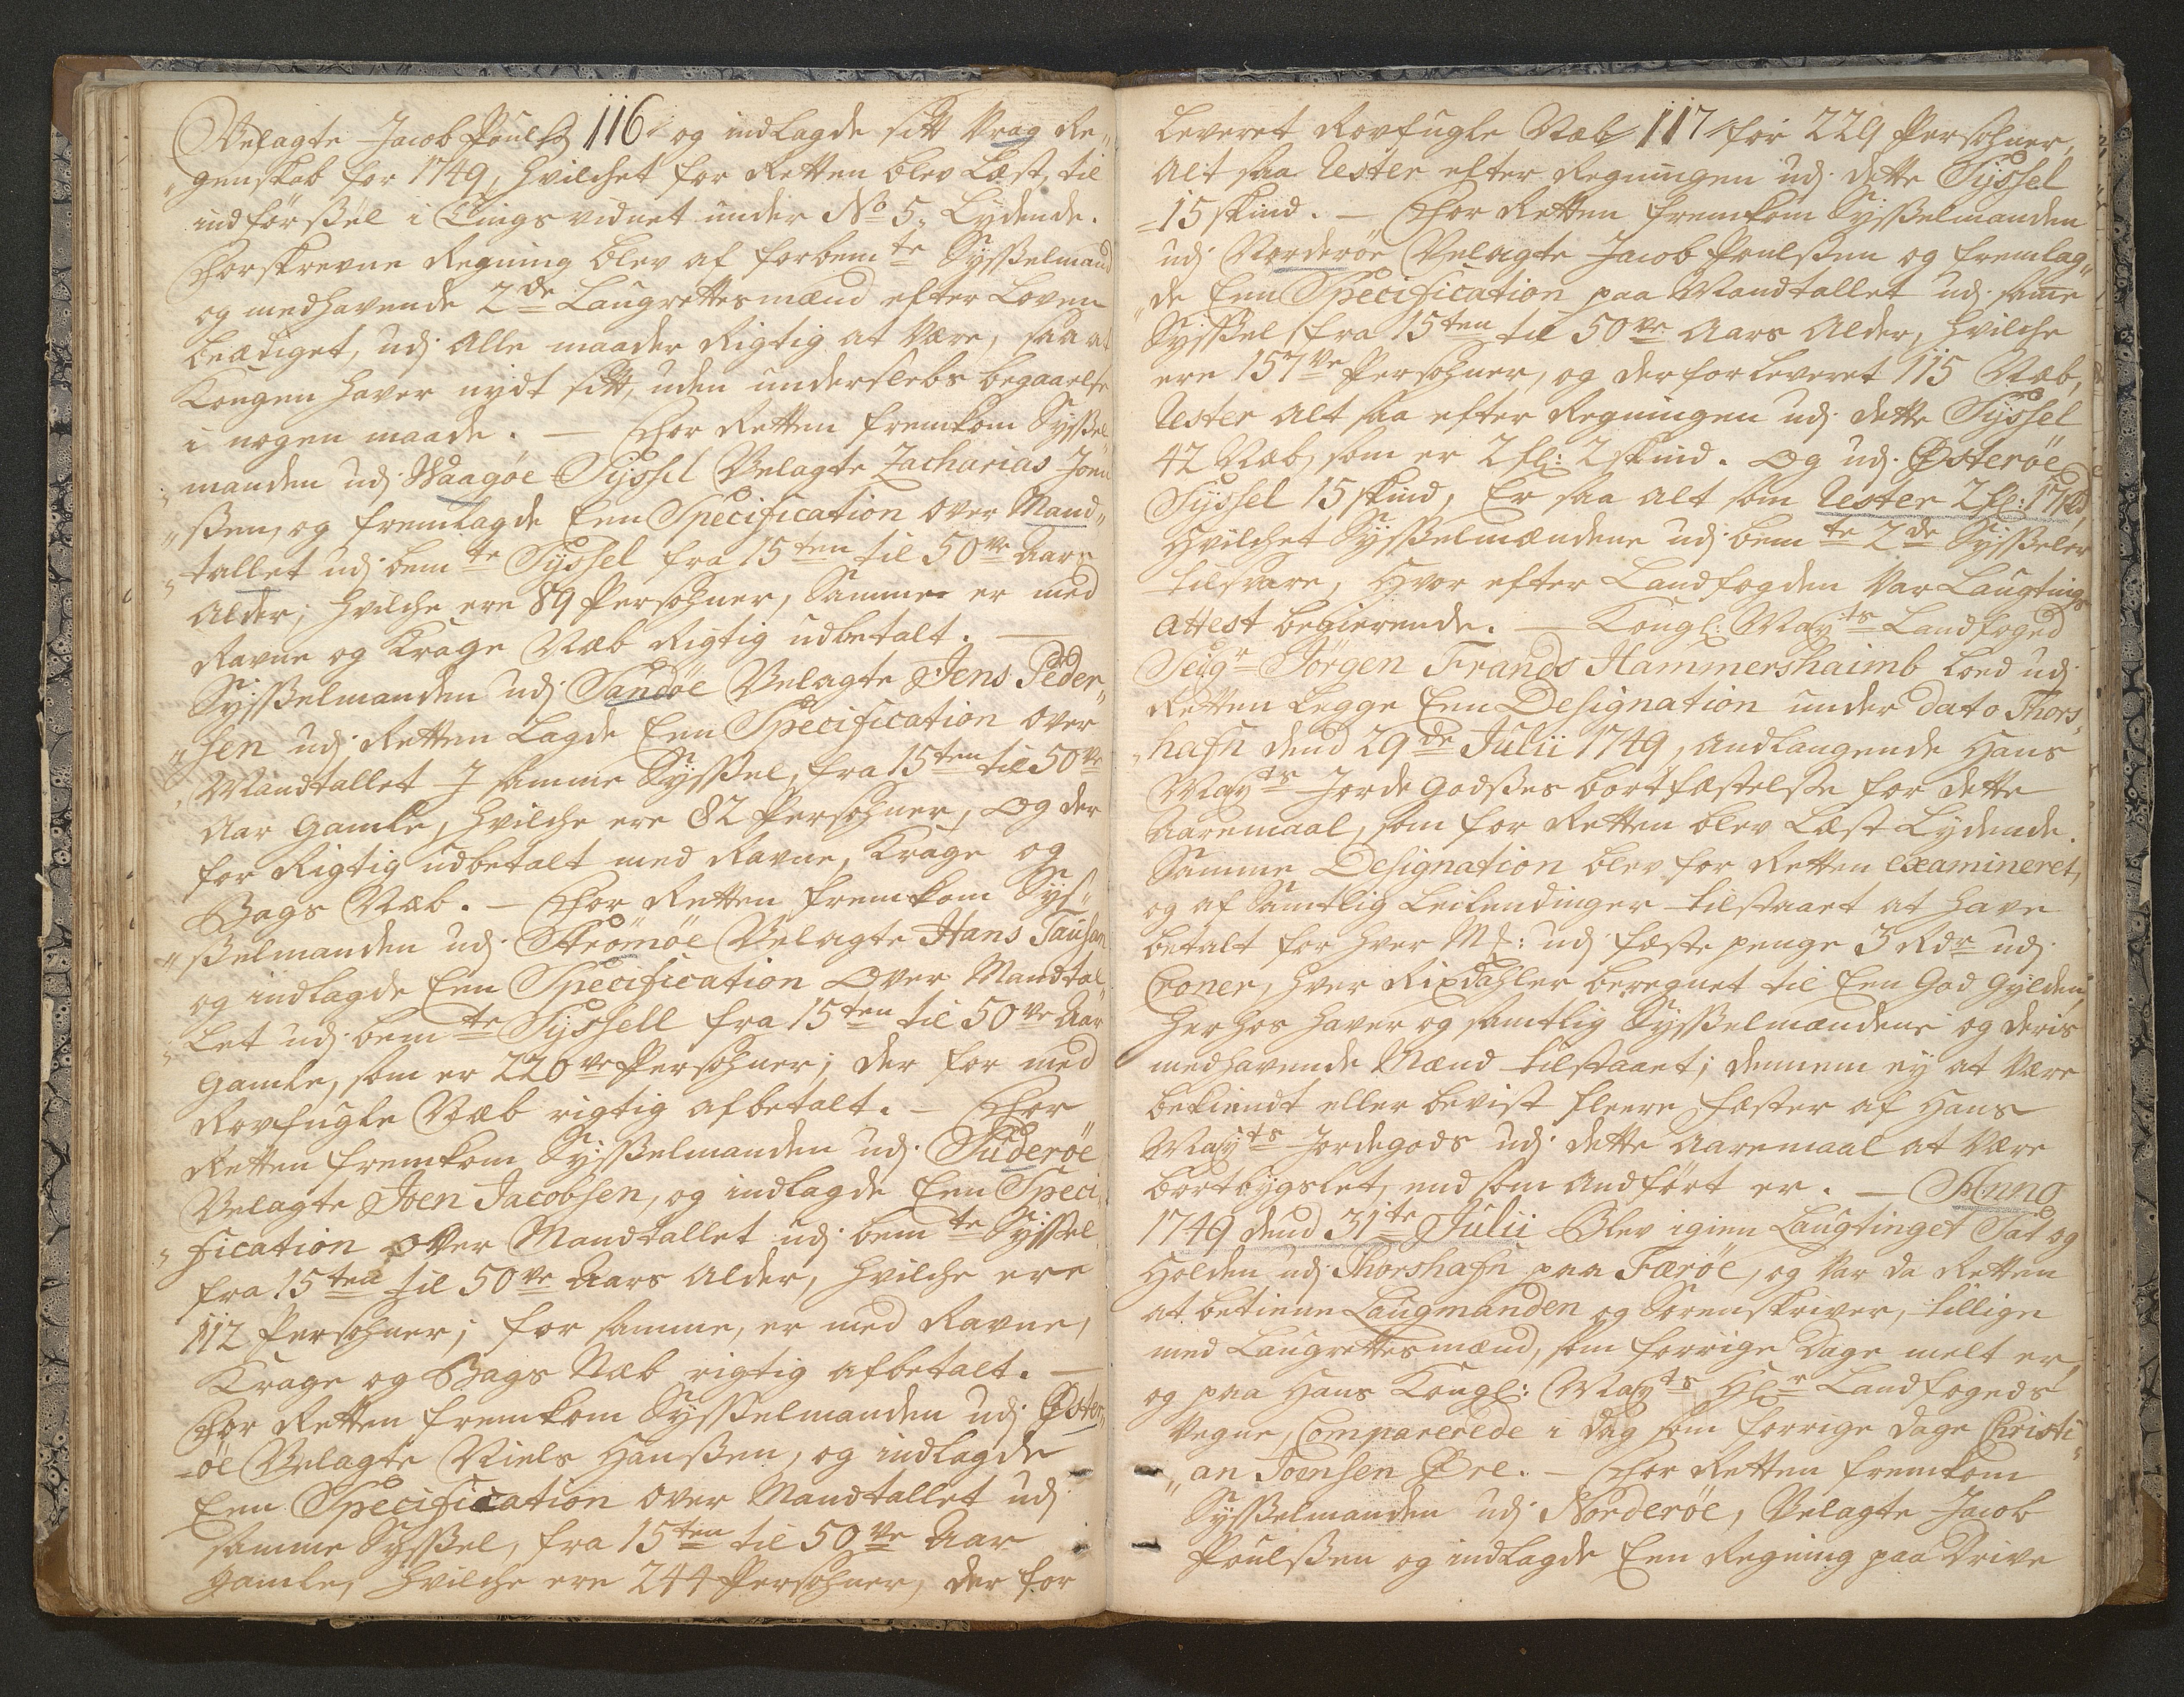 Velagte Jacob Pouls: 116 og indlagde sitt Vrag Re„
„genskab for 1749, hvilchet for Retten blev Læst, til
indførßel i Tings vidnet under No 5, Lydende.
Forskrevne Regning blev af forbemte Sysßelmand
og medhavende 2de Laugrettesmænd efter Loven
beædiget, udj alle maader Rigtig at være, saa at
Kongen haver nydt sitt, uden underslebs begaaelse
i nogen maade. — For Retten fremkom Sysßel
manden udj Waagøe Syssel Velagte Zacharias Joen
„ßen, og fremlagde Een Specification over Mand„
„tallet udj bemte Syssel fra 15ten til 50ve Aars
Alder, hvilche ere 89 Persohner, Samme er med
Ravne og Krage Næb Rigtig udbetalt. —
Sysßelmanden udj Sandøe Velagte Jens Peder„
„sen udj Retten Lagde Een Specification over
Mandtallet J samme Sysßel, fra 15ten til 50ve
Aar gamle, hvilche ere 82 Persohner, Og der
for Rigtig udbetalt med Ravne, Krage og
Bags Næb. — For Retten fremkom Sys„
„ßelmanden udj Strömöe Velagte Hans Tausan
og indlagde Een Specification Over Mandtal„
„let udj bemte Syssell fra 15ten til 50ve Aar
gamle, som er 220ve Persohner; der for med
Rovfugle Næb rigtig afbetalt. — For
Retten fremkom Sysßelmanden udj Suderöe
Velagte Joen Jacobsen, og indlagde Een Speci„
„fication over Mandtallet udj bemte Syssel
fra 15ten til 50ve Aars Alder, hvilche ere
112 Persohner; for samme, er med Ravne,
Krage og Bags Næb rigtig afbetalt. —
For Retten fremkom Sysßelmanden udj Øster„
„öe Velagte Niels Hanßen, og indlagde
Een Specification over Mandtallet udj
samme Sysßel, fra 15ten til 50ve Aar
gamle, hvilche ere 244 Persohner, der for
leveret Rovfugle Næb 117 for 229 Persohner,
Alt saa Rester efter Regningen udj dette Syssel
15 skind. — For Retten fremkom Sysßelmanden
udj Norderöe Velagte Jacob Poulßen og fremlag„
„de Een Specification paa Mandtallet udj same
Sysßel fra 15ten til 50ve Aars Alder, hvilche
ere 157ve Persohner, og derfor leveret 115 Næb,
Rester Alt saa efter Regningen udj dette Syssel
42 Næb, som er 2 gl: 2 skind. Og udj Østeröe
Syssel 15 skind, Er saa alt som Rester 2 gl: 17 skd,
Hvilchet Sysßelmændene udj bemte 2de Sysßeler
tilsvare, Hvor efter Landfogden var Laugtings
Attest begierende. — Kongl: Mayts Landfoged
Seigr Jörgen Frands Hammershaimb loed udj
Retten Legge Een Designation under dato Thors„
„hafn dend 29de Julii 1749, andlangende Hans
Mayts Jorde godßes bortfæstelße for dette
Aaremaal, som for Retten blev Læst Lydende.
Samme Designation blev for Retten examineret,
og af Samtlig Leilendinger tilstaaet at have
betalt for hver Mk: udj fæste penge 3 Rdr udj
Croner, hver Rixdahler beregnet til Een God gylden,
Her hos haver og samtlig Sysßelmændene og deris
medhavende Mænd tilstaaet, dennem ey at være
bekiendt eller bevist fleere fæster af Hans
Mayts Jordegods udj dette Aaremaal at være
bortbygslet, end som andført er. — Anno
1749 dend 31te Julii Blev igien Laugtinget Sat og
Holden udj Thorshafn paa Færöe, og var da Retten
at betiene Laugmanden og Sorenskriver, tillige
med Laugrettesmænd, som forrige Dage melt er,
og paa Hans Kongl: Mayts Hr Landfogeds
vegne, Comparerede i Dag som forrige dage Christi„
„an Joensen Øre. — For Retten fremkom
Sysßelmanden udj Norderöe, Velagte Jacob
Poulßen og indlagde Een Regning paa Drive